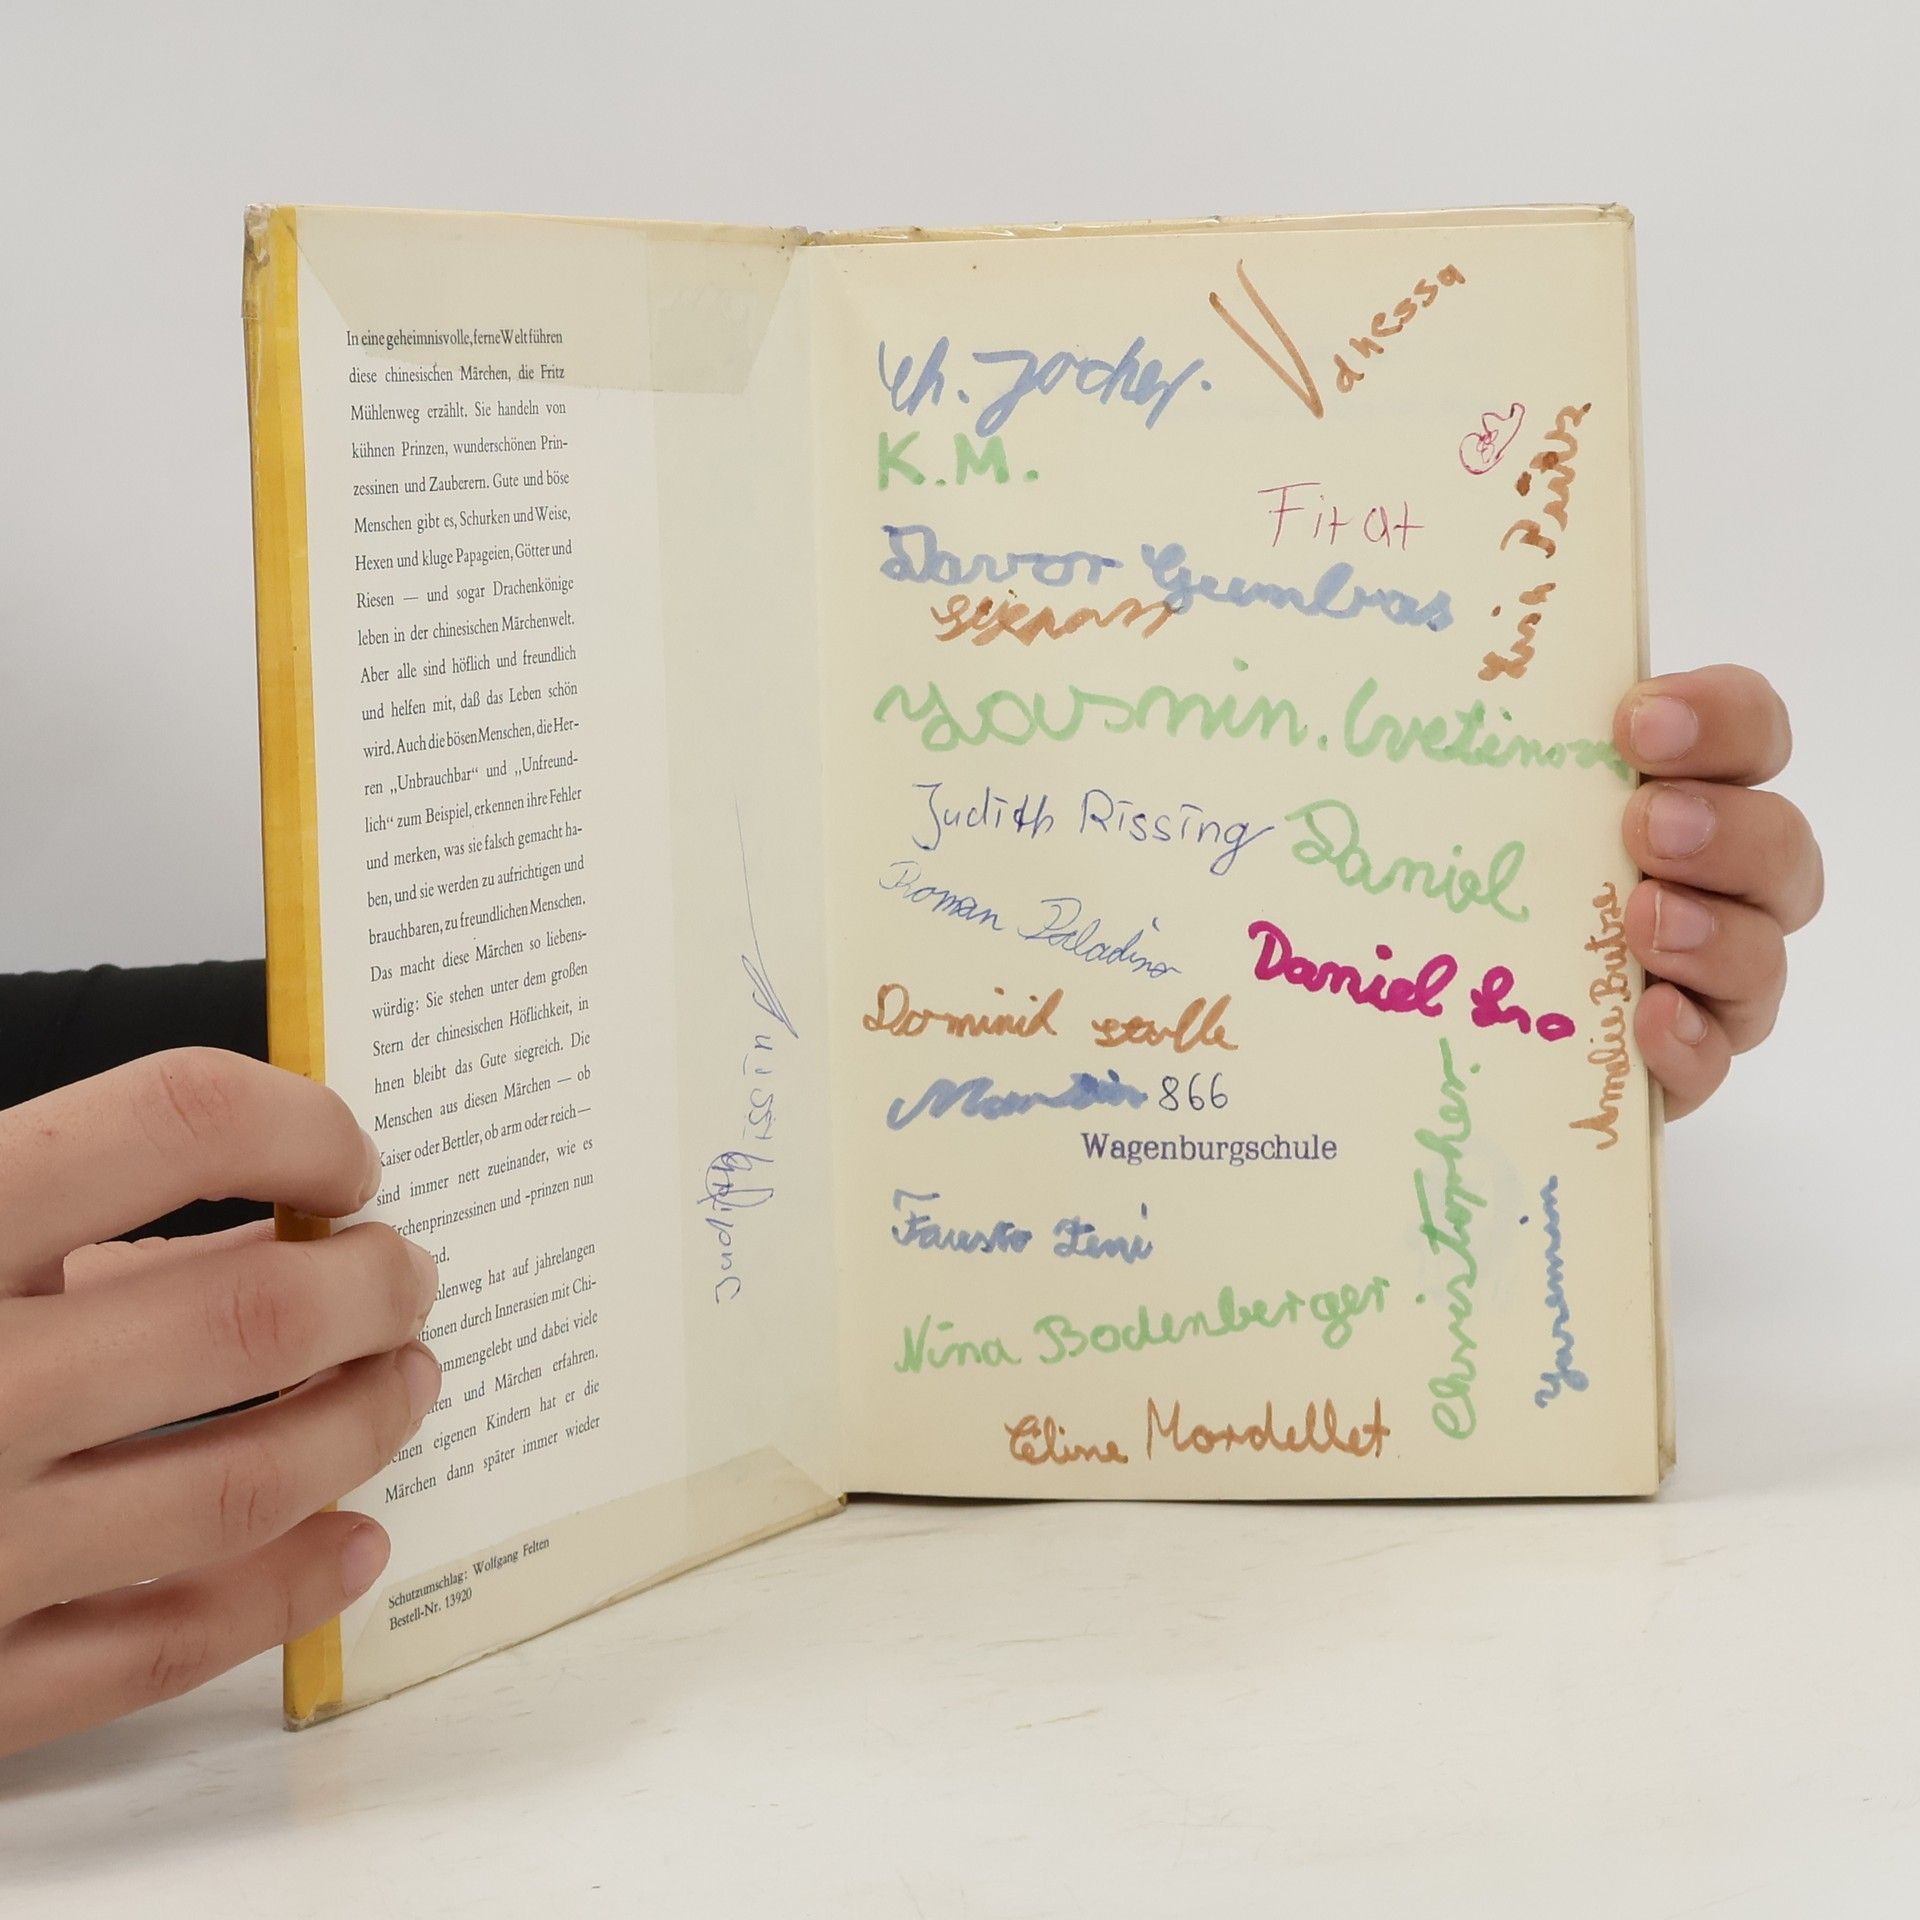 In eine geheimnisvolle, ferne Welt führen
diese chinesischen Märchen, die Fritz
Mühlenweg erzählt. Sie handeln von
kühnen Prinzen, wunderschönen Prin-
zessinen und Zauberern. Gute und böse
Menschen gibt es, Schurken und Weise,
Hexen und kluge Papageien, Götter und
Riesen — und sogar Drachenkönige
leben in der chinesischen Märchenwelt.
Aber alle sind höflich und freundlich
und helfen mit, daß das Leben schön
wird. Auch die bösen Menschen, die Her-
ren „Unbrauchbar“ und „Unfreund-
lich“ zum Beispiel, erkennen ihre Fehler
und merken, was sie falsch gemacht ha-
ben, und sie werden zu aufrichtigen und
brauchbaren, zu freundlichen Menschen.
Das macht diese Märchen so liebens-
würdig: Sie stehen unter dem großen
Stern der chinesischen Höflichkeit, in
hnen bleibt das Gute siegreich. Die
Menschen aus diesen Märchen — ob
Kaiser oder Bettler, ob arm oder reich —
sind immer nett zueinander, wie es
rchenprinzessinen und -prinzen nun
ind.
hlenweg hat auf jahrelangen
tionen durch Innerasien mit Chi-
mmengelebt und dabei viele
ten und Märchen erfahren.
einen eigenen Kindern hat er die
Märchen dann später immer wieder
Schutzumschlag: Wolfgang Felten
Bestell-Nr. 13920
Judith Rissing
Vanessa
K.M.
Firat
Davor
Yasmin.
Judith Rissing
Daniel
Roman Paladino
Daniel
Dominik
866
Wagenburgschule
Fausto
Nina Bodenberger
Céline Mordellet
Christopher.
Yasemin
Amelie